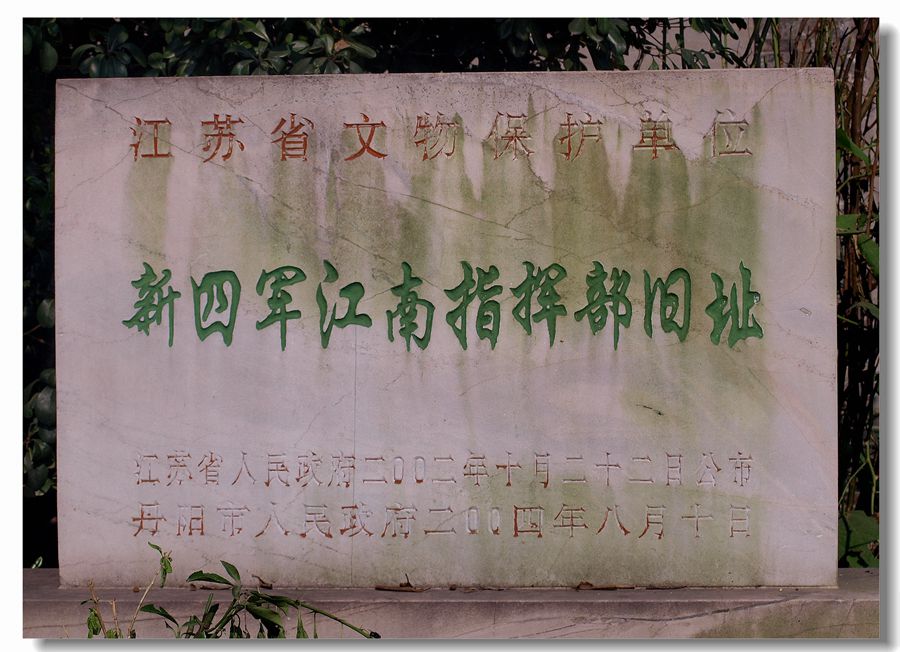 江苏省文物保护单位
新四军江南指挥部旧址
江苏省人民政府二00二年十月二十二日公布
丹阳市人民政府二00四年八月十日